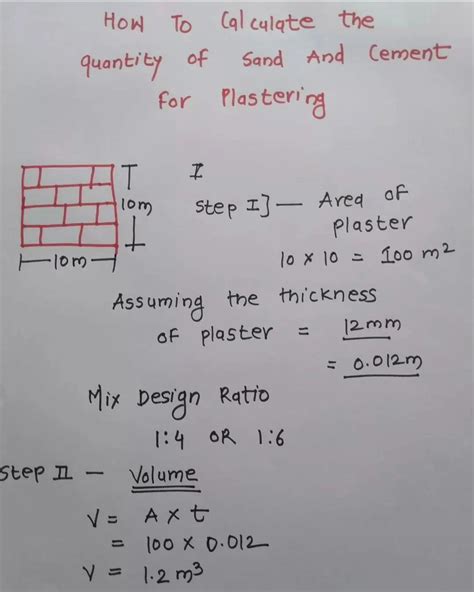 How To Calculate the
quantity of Sand And Cement
for Plastering
I
10m
Step I] — Area of
plaster
10m
10 × 10 = 100 m²
Assuming the thickness
of plaster = 12mm
= 0.012m
Mix Design Ratio
1:4 OR 1:6
Step II — Volume
V = A × t
= 100 × 0.012
V = 1.2 m³